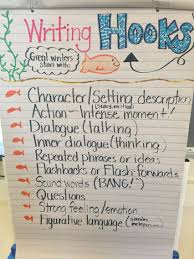 Writing Hooks
Great writers
start with:
Character/Setting description
Action-Intense moment!
Dialogue (talking)
Inner dialogue (thinking)
Repeated phrases or ideas
Flashbacks or Flash-forwards
Sound words (BANG!)
Questions
Strong feeling/emotion
Figurative language